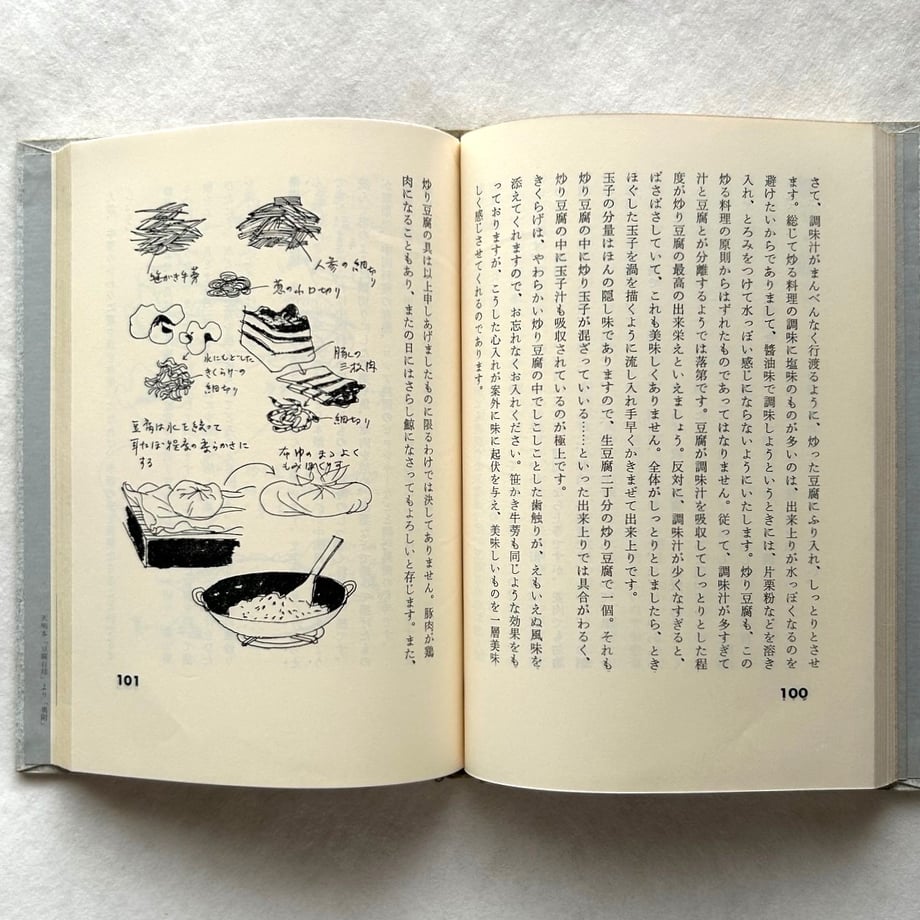 さて、調味汁がまんべんなく行渡るように、炒った豆腐にふり入れ、しっとりとさせ
ます。総じて炒る料理の調味に塩味のものが多いのは、出来上りが水っぽくなるのを
避けたいからでありまして、醬油味で調味しようというときには、片栗粉などを溶き
入れ、とろみをつけて水っぽい感じにならないようにいたします。炒り豆腐も、この
炒る料理の原則からはずれたものであってはなりません。従って、調味汁が多すぎて
汁と豆腐とが分離するようでは落第です。豆腐が調味汁を吸収してしっとりとした程
度が炒り豆腐の最高の出来栄えといえましょう。反対に、調味汁が少くなすぎると、
ぱさぱさしていて、これも美味しくありません。全体がしっとりとしましたら、とき
ほぐした玉子を渦を描くように流し入れ手早くかきまぜて出来上りです。
玉子の分量はほんの隠し味でありますので、生豆腐二丁分の炒り豆腐で一個。それも
炒り豆腐の中に炒り玉子が混ざっている……といった出来上りでは具合がわるく、
炒り豆腐の中に玉子汁も吸収されているのが極上です。
きくらげは、やわらかい炒り豆腐の中でしこしことした歯触りが、えもいえぬ風味を
添えてくれますので、お忘れなくお入れください。笹がき牛蒡も同じような効果をも
っておりますが、こうした心入れが案外に味に起伏を与え、美味しいものを一層美味
しく感じさせてくれるのであります。
100
炒り豆腐の具は以上申しあげましたものに限るわけでは決してありません。豚肉が鶏
肉になることもあり、またの日にはさらし鯨になさってもよろしいと存じます。また、
人参の細切り
笹がき牛蒡
葱の小口切り
豚しの
三枚肉
水にもどした
きくらげの
細切り
細切り
豆腐は水を絞って
耳たぼ程度の柔らかさに
する
布巾のまゝよく
もみほぐす
101